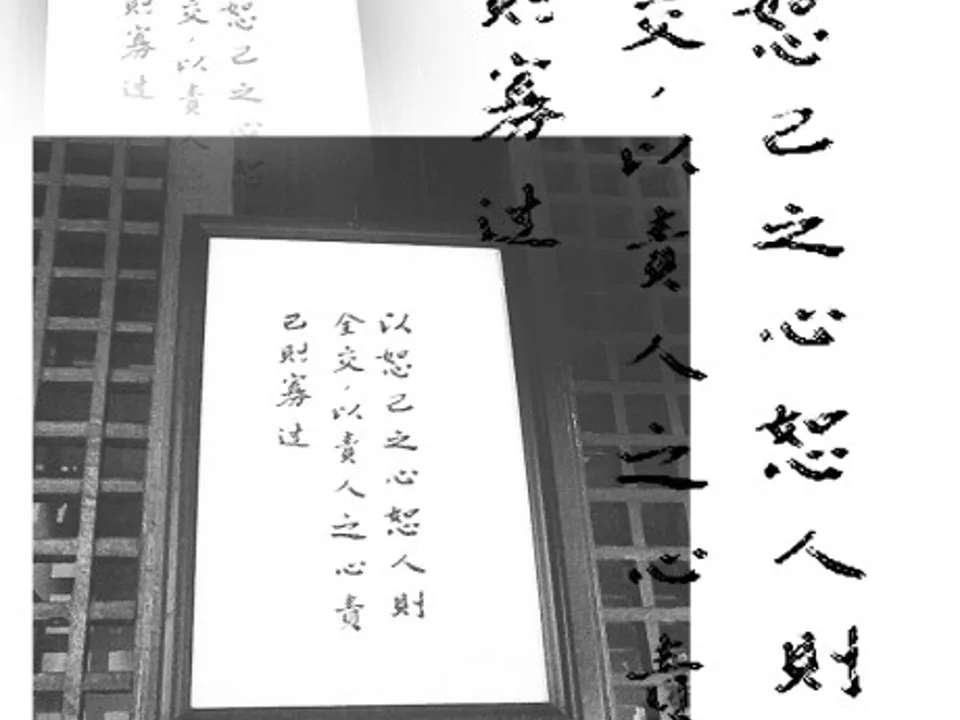 恕己之心恕
交，以責人
則寡過
恕己之心恕人則
交，以責人之心責
則寡過
以恕己之心恕人則
全交，以責人之心責
己則寡過